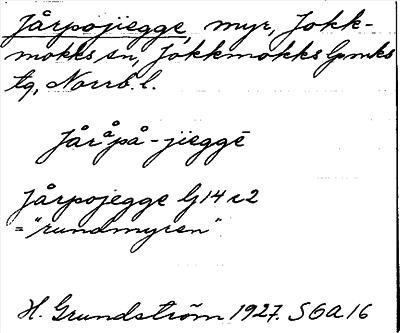 Jårpojiegge, myr, Jokk-
mokks sn, Jokkmokks lpmks
tg, Norrb. l.
Jåråpå-jieggē
Jårpojegge lj 14 c2
= "rundmyren"
H. Grundström 1927. S6a16